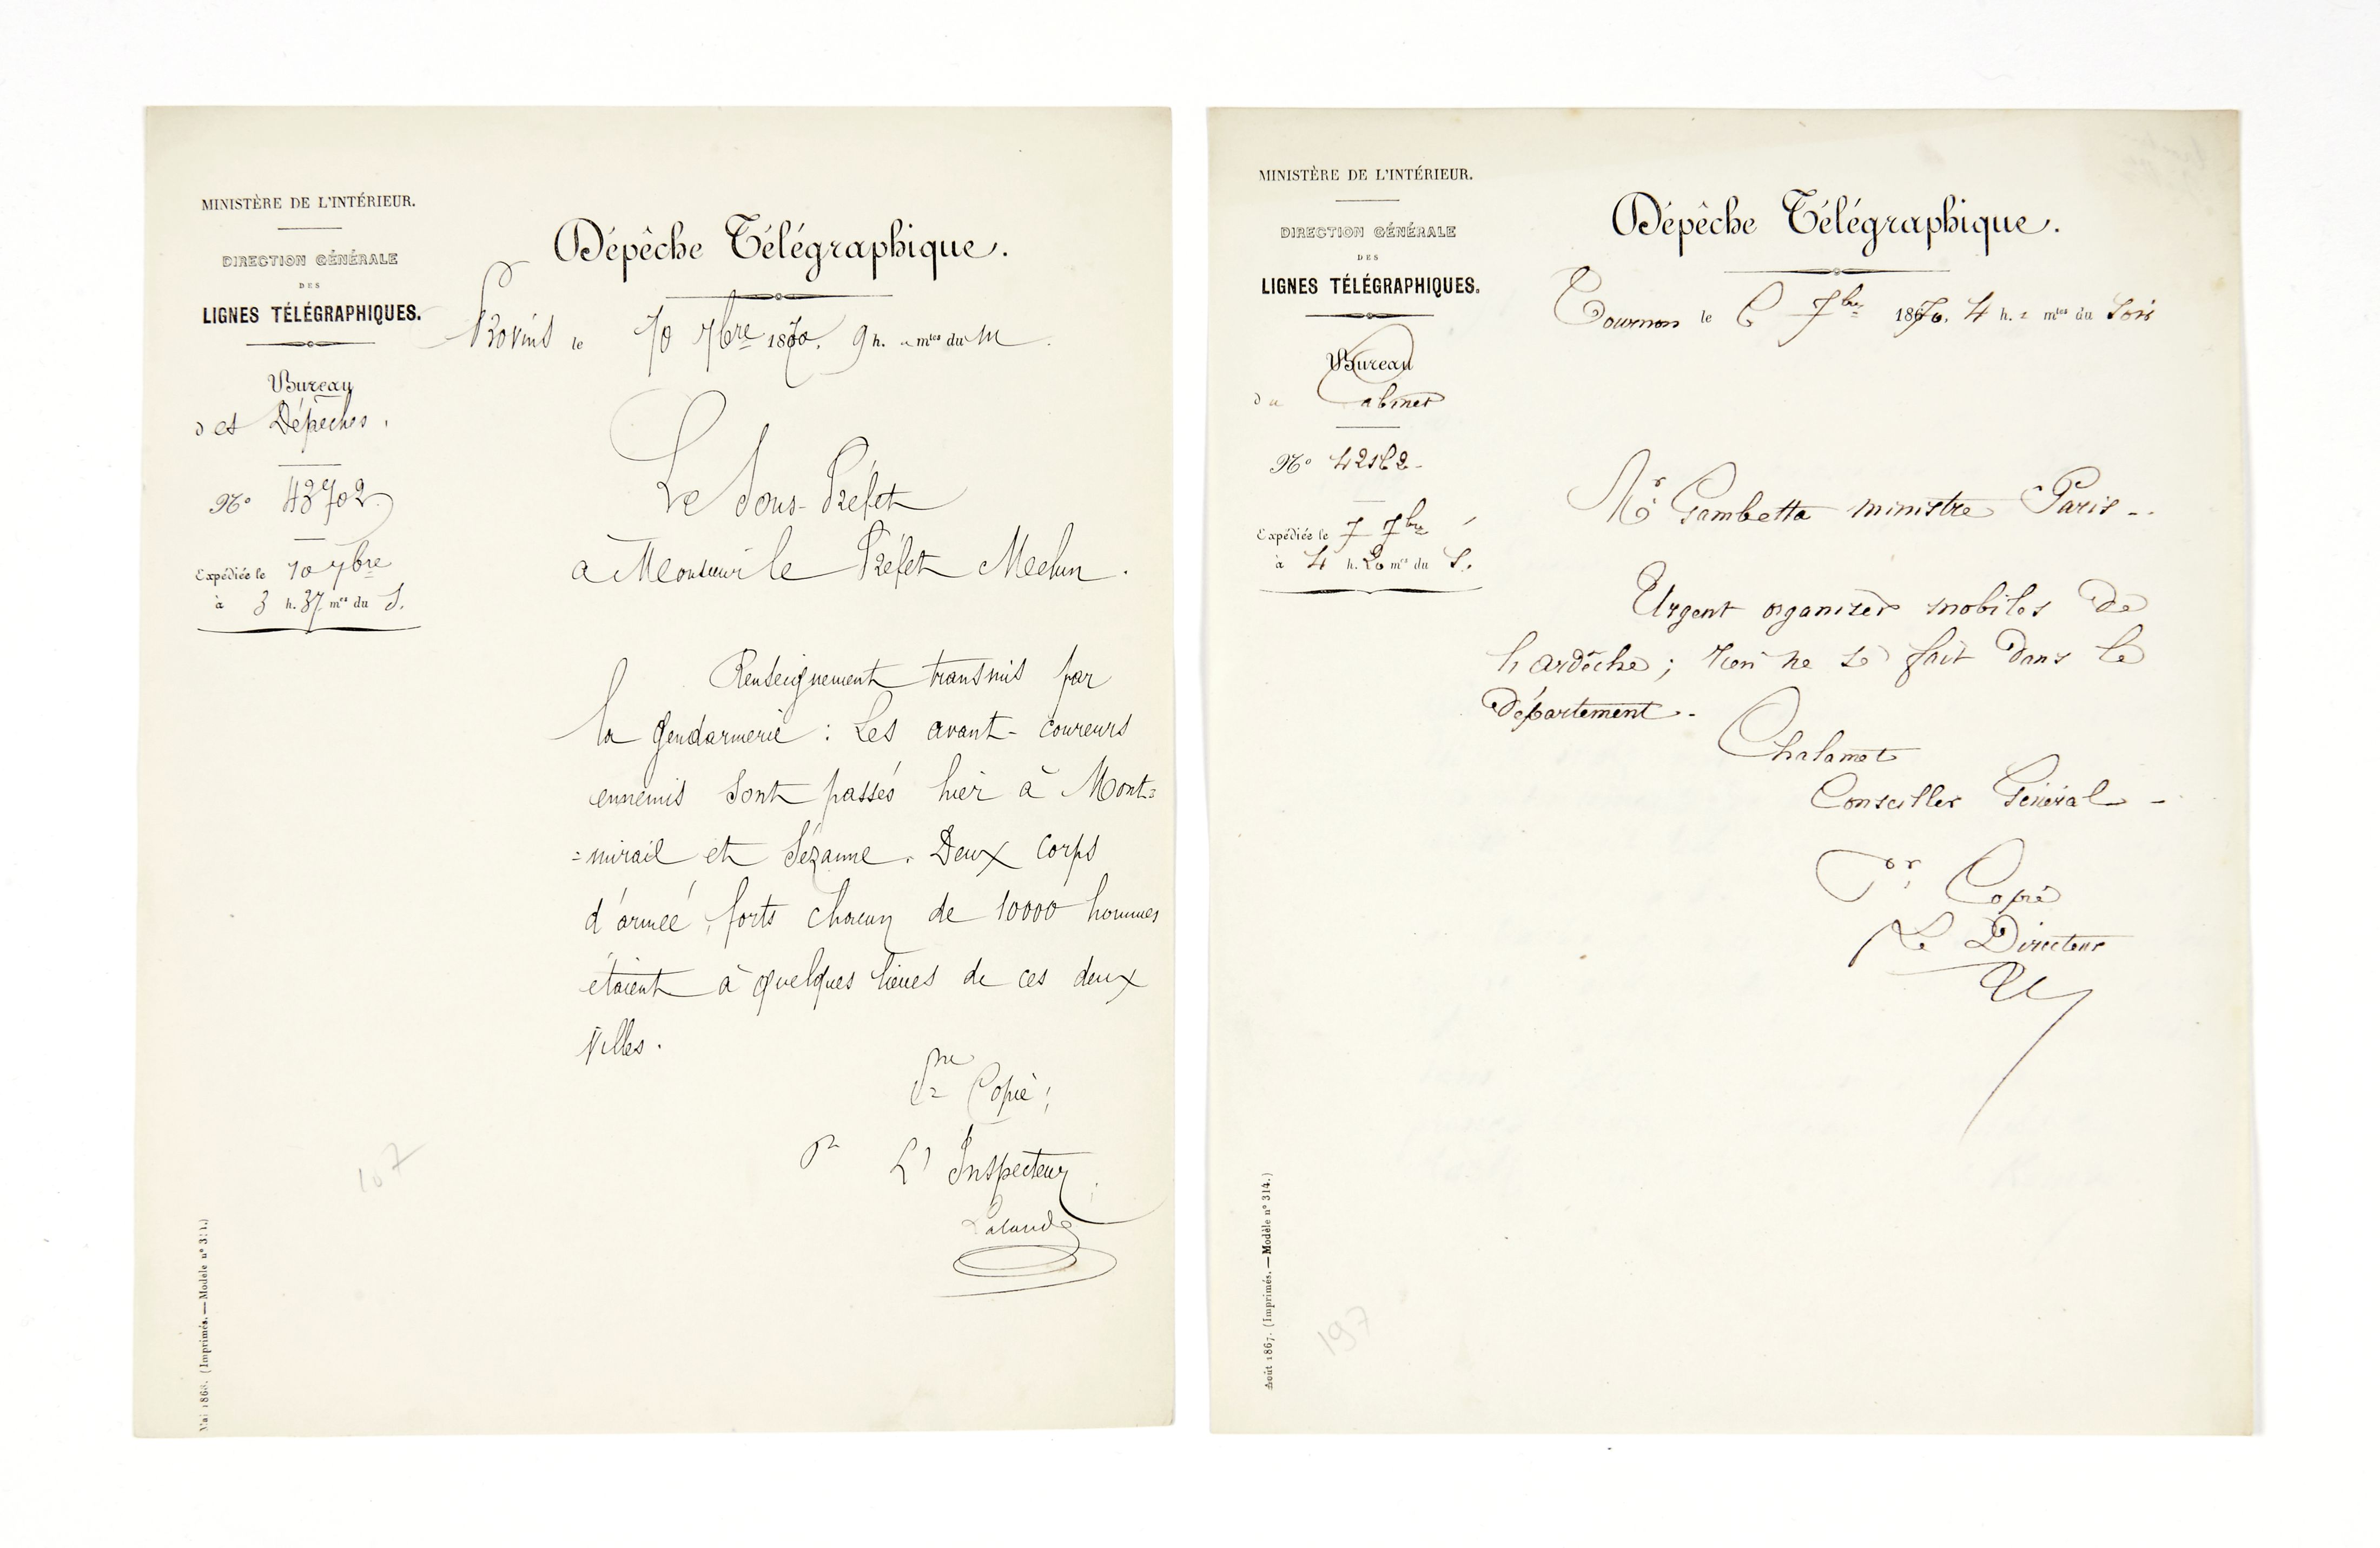 MINISTÈRE DE L'INTÉRIEUR.
DIRECTION GÉNÉRALE
DES
LIGNES TÉLÉGRAPHIQUES.
Bureau
des Dépêches.
No 43702
Expédiée le 10 7bre
à 3 h. 37 mes du S.
Dépêche Télégraphique.
Provins le 10 7bre 1870. 9 h. " mtes du M
Le Sous-Préfet
à Monsieur le Préfet Melun.
Renseignement transmis par
la Gendarmerie : Les avant-coureurs
ennemis sont passés hier à Mont=
=mirail et Sézanne. Deux corps
d'armée, forts chacun de 10000 hommes
étaient à quelques lieues de ces deux
Villes.
Pre Copie;
Pr L'Inspecteur
Lalande
107
Mai 1868. (Imprimés. — Modèle no 314.)
MINISTÈRE DE L'INTÉRIEUR.
DIRECTION GÉNÉRALE
DES
LIGNES TÉLÉGRAPHIQUES.
Bureau
du Cabinet
No 42162
Expédiée le 7 7bre
à 4 h. 20 mes du S.
Dépêche Télégraphique.
Tournon le 6 7bre 1870. 4 h. " mtes du Soir
Mr Gambetta ministre Paris -.
Urgent organiser mobiles de
l'ardèche; rien ne se fait dans le
département.
Chalamet
Conseiller Général -
Pr Copie
Le Directeur
197
Août 1867. (Imprimés. — Modèle no 314.)